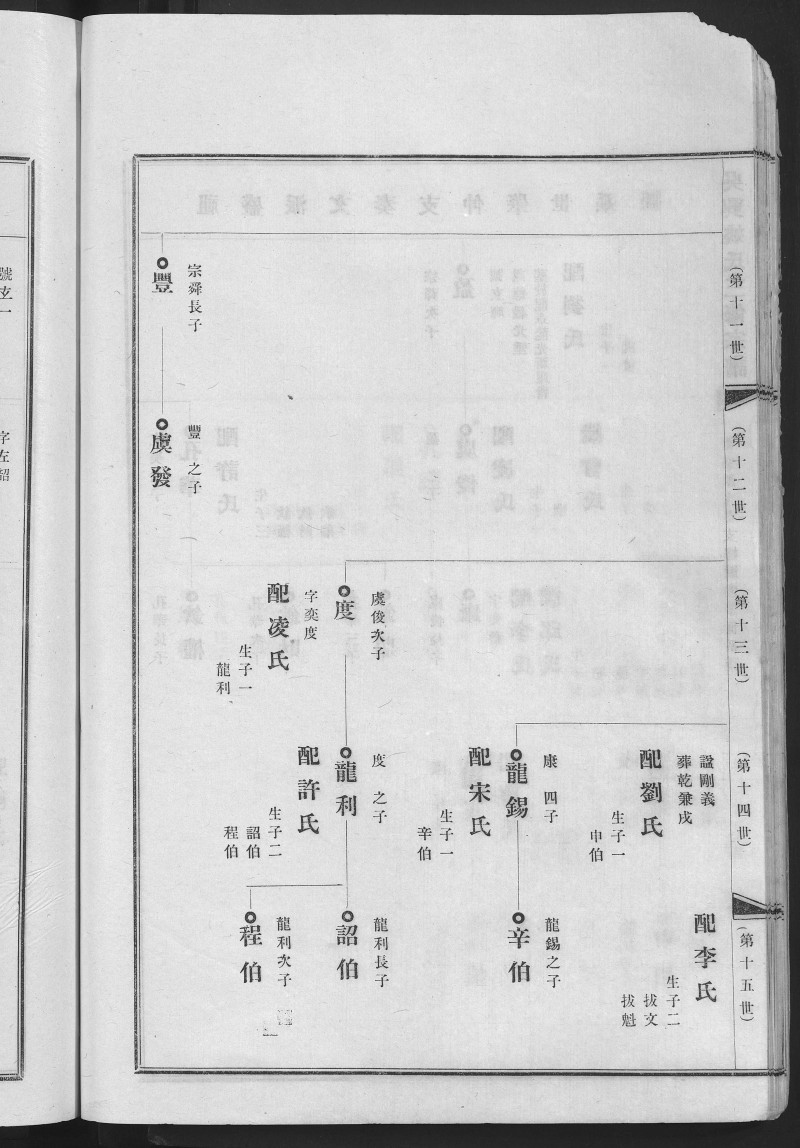 (第十一世)
(第十二世)
(第十三世)
(第十四世)
(第十五世)
宗舜長子
豐
豐之子
虞發
虞俊次子
度
字奕度
配凌氏
生子一
龍利
諡剛義
葬乾兼戌
配劉氏
生子一
申伯
康四子
龍錫
配宋氏
生子一
辛伯
度之子
龍利
配許氏
生子二
詔伯
程伯
配李氏
生子二
拔文
拔魁
龍錫之子
辛伯
龍利長子
詔伯
龍利次子
程伯
字左詔